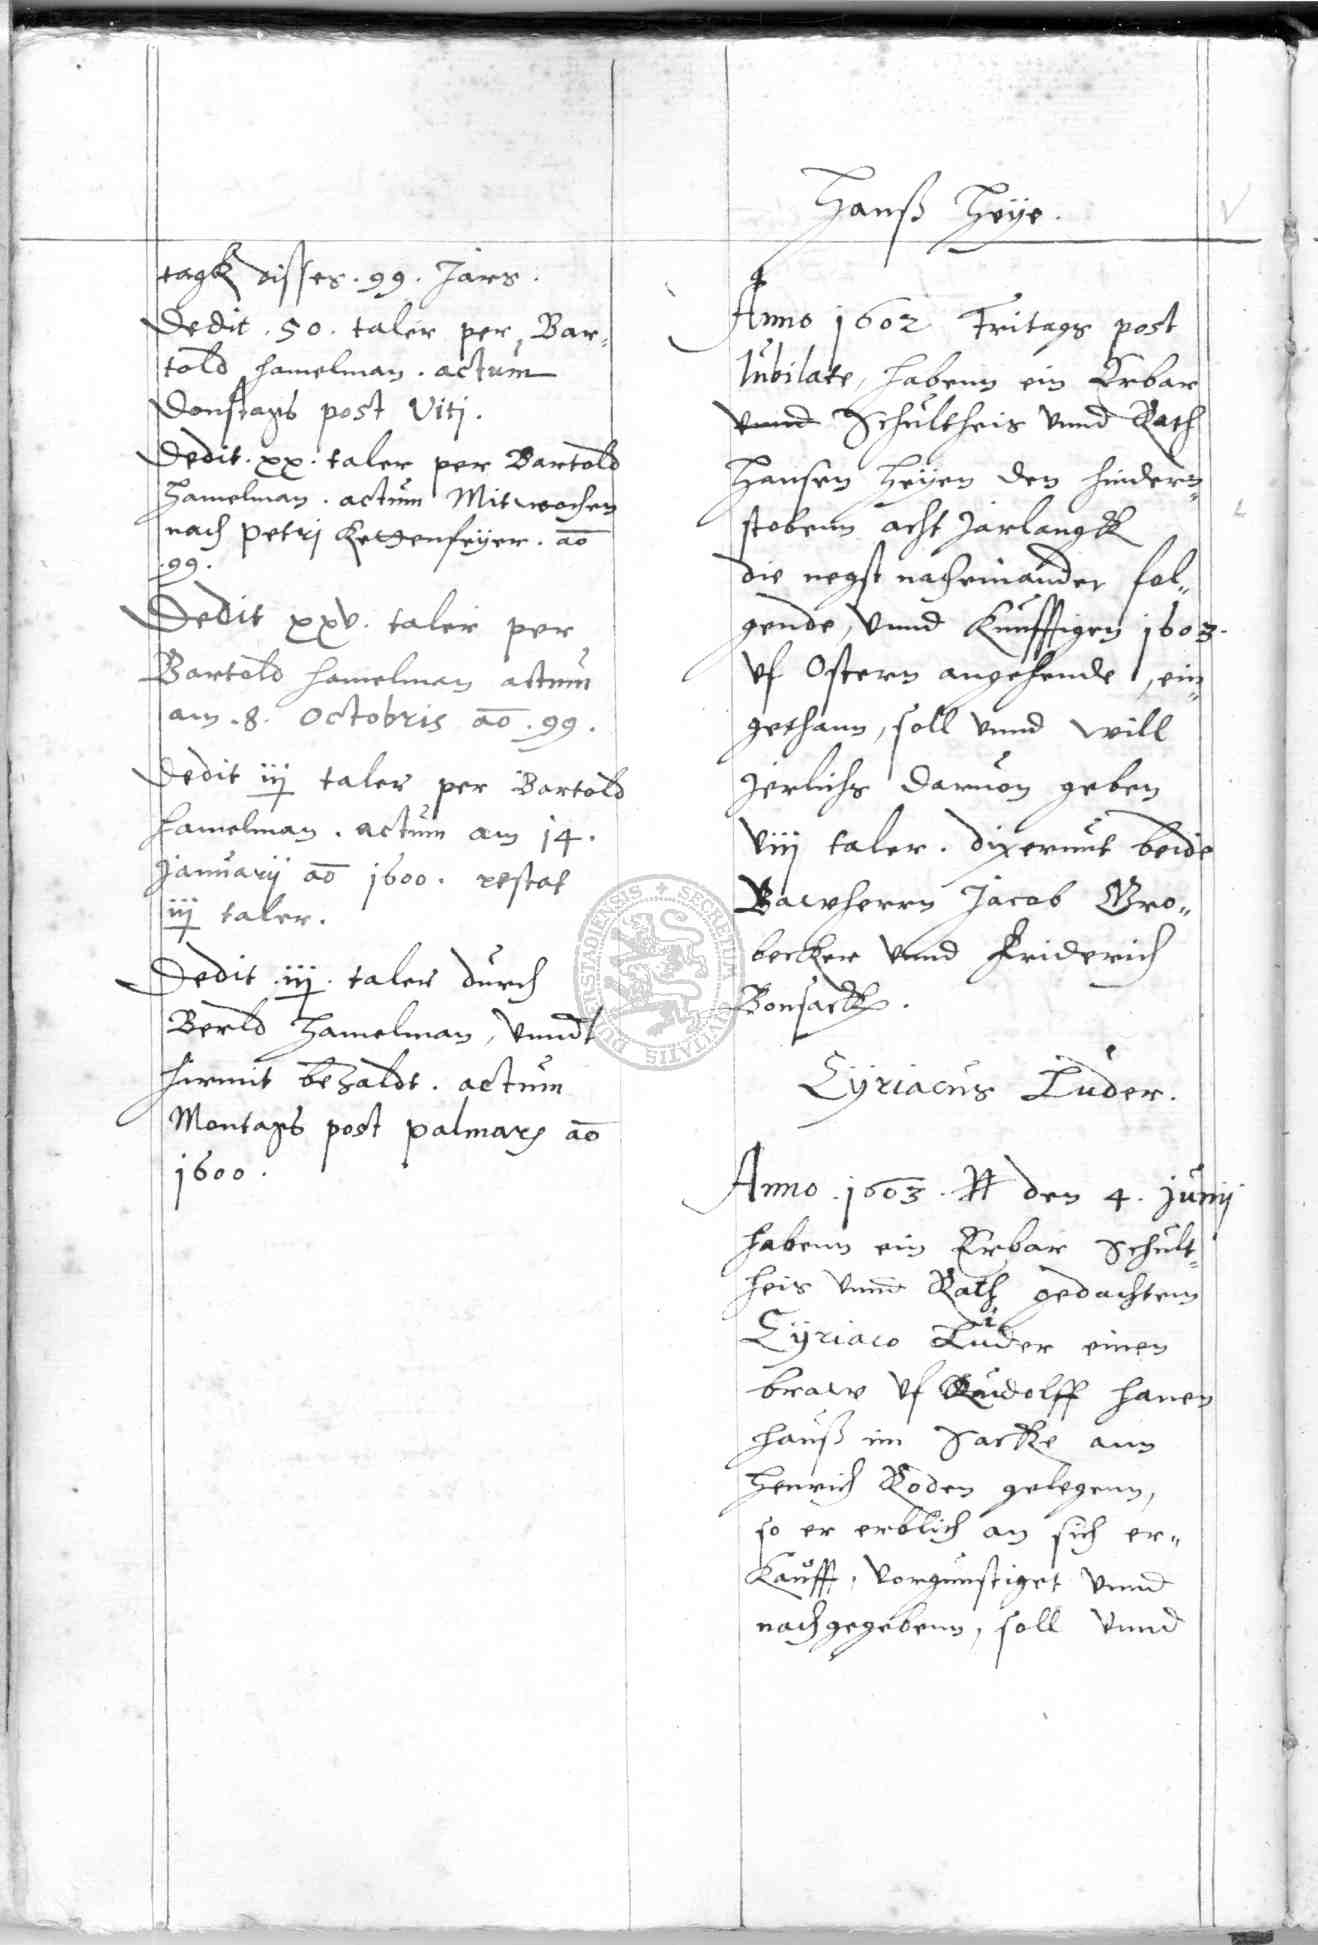 tagk disses . 99 . Jars .
Dedit . 50 . taler per Bar„
told Hamelman . actum
Donstags post Viti .
Dedit . xx . taler per Bartold
Hamelman . actum Mitwochen
nach Petrj Kettenfeÿer . ao
. 99 .
Dedit xxv . taler per
Bartold Hamelman actum
am . 8 . Octobris ao . 99 .
Dedit iij taler per Bartold
Hamelman . actum am 14 .
Januarij ao 1600 . restat
iij taler .
Dedit . iij . taler durch
Berld Hamelman , vnndt
hirmit bezaldt . actum
Montags post palmarum ao
1600 .
Hanß Heÿe .
Anno 1602 Fritags post
Iubilate , habenn ein Erbar
vnnd Schultheis vnnd Rath
Hansen Heÿen den hindern„
stobenn acht Jarlangk
die negst nacheinander fol„
gende , vnnd Kunfftigen 1603 .
vf Ostern angehende , ein„
gethann , soll vnnd will
Jerlichs daruon geben
viij taler . dixerunt beide
Bawherrn Jacob Gro„
becker vnnd Friderich
Bonsack .
Cÿriacus Luder .
Anno . 1603 . den 4 . Junij
habenn ein Erbar Schult„
heis vnnd Rath gedachtem
Cÿriaco Luder einen
braw vf Rudolff Hanen
Hauß im Sacke ann
Henrich Roden gelegenn ,
so er erblich an sich er„
Kaufft , vorgunstiget vnnd
nachgegebenn , soll vnnd
DUDERSTADIENSIS + SECRETUM CIVITATIS